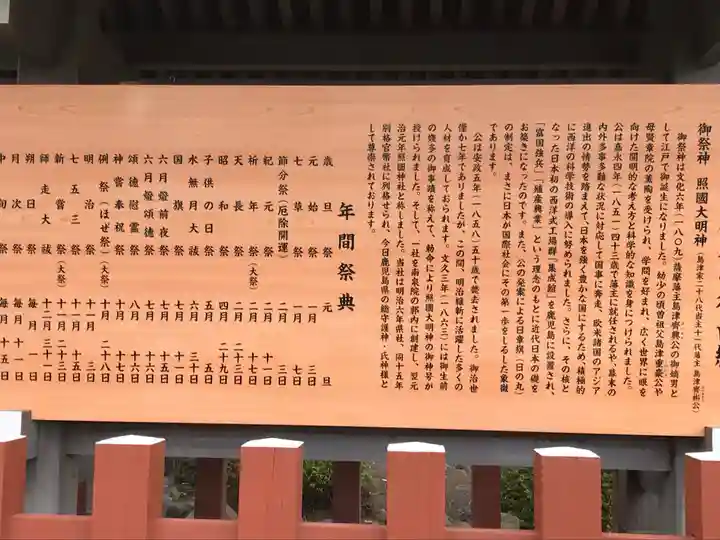 御祭神 照國大明神（島津家二十八代当主十一代藩主 島津齊彬公）
御祭神は文化六年（一八〇九）薩摩藩主島津齊興公の御嫡男と
して江戸で御誕生になりました。幼少の頃曽祖父島津重豪公や
母賢章院の薫陶を受けられ、学問を好まれ、広く世界に眼を
向けた開明的な考え方と科学的な知識を身につけられました。
公は嘉永四年（一八五一）四十三歳で藩主に就任されるや、幕末の
内外多事多難な状況に対処して国事に奔走、欧米諸国のアジア
進出の情勢を踏まえて、日本を強く豊かな国にするため、積極的
に西洋の科学技術の導入に努められました。さらに、その核と
なった日本初の西洋式工場群「集成館」を鹿児島に設置され、
「富国強兵」「殖産興業」という理念のもとに近代日本の礎を
お築きになったのです。また、公の発案による日章旗（日の丸）
の制定は、まさに日本が国際社会にその第一歩をしるした象徴
であります。
公は安政五年（一八五八）五十歳で薨去されました。御治世
僅か七年でありましたが、この間、明治維新に活躍した多くの
人材を育成しておられます。文久三年（一八六三）には御生前
の幾多の御事蹟を称えて、勅命により照國大明神の御神号が
授けられました。そして、一社を南泉院の郭内に創建し、翌元
治元年照國神社と称しました。当社は明治六年県社、同十五年
別格官幣社に列格せられ、今日鹿児島県の総守護神、氏神様と
して尊崇されております。
年間祭典
歳旦祭 元旦
元始祭 一月 三日
七草祭 一月 七日
節分祭（厄除開運） 二月 三日
紀元祭 二月 十一日
祈年祭（大祭） 二月 二十三日
天長祭
昭和祭 四月 二十九日
子供の日祭 五月 五日
水無月大祓 六月 三十日
国旗祭 七月 十一日
六月燈前夜祭 七月 十五日
六月燈頌徳祭 七月 十六日
頌徳慰霊祭 八月 十六日
神嘗奉祝祭 十月 十七日
例祭（ほぜ祭）（大祭） 十月 二十八日
明治祭 十一月 三日
七五三祭 十一月 十五日
新嘗祭（大祭） 十一月 二十三日
師走大祓 十二月 三十一日
朔日祭 毎月 一日
月次祭
中旬祭 毎月 十五日